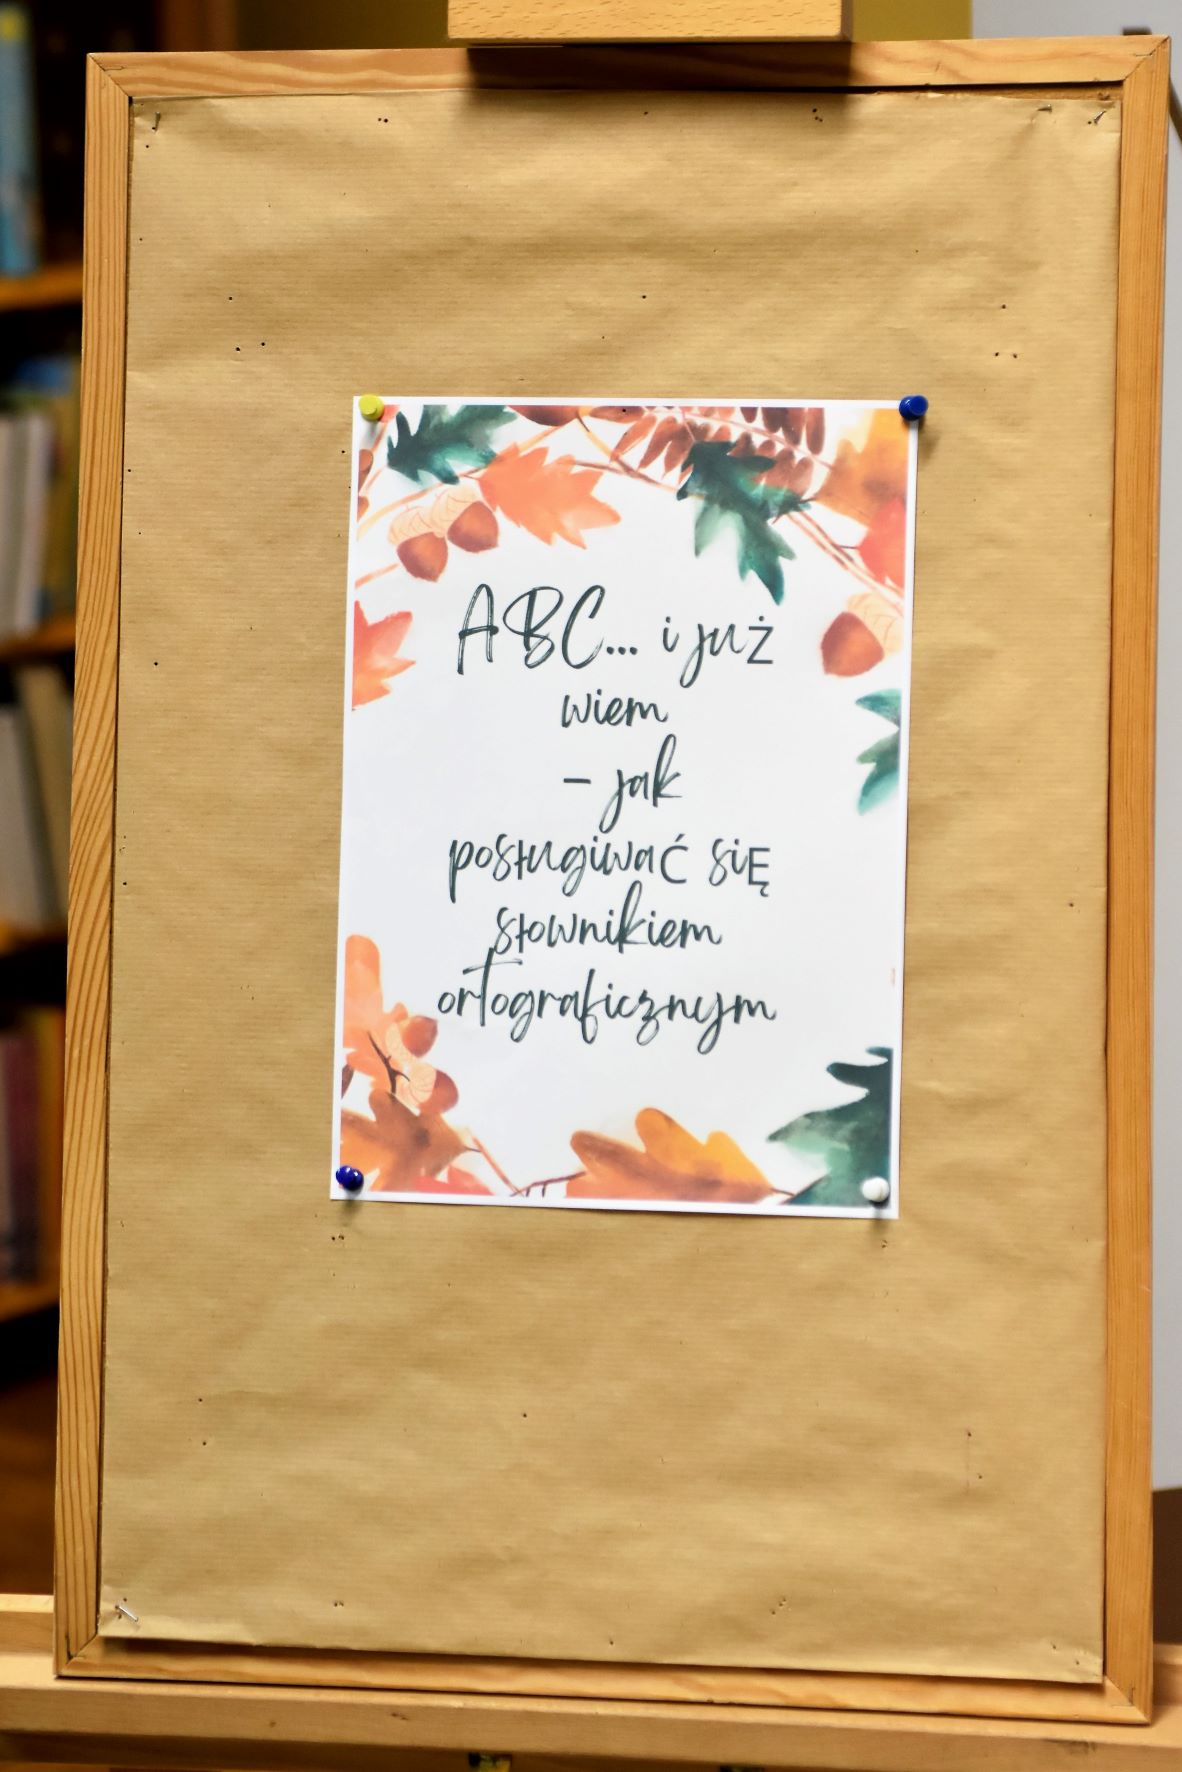 ABC... i już
wiem
– jak
posługiwać się
słownikiem
ortograficznym